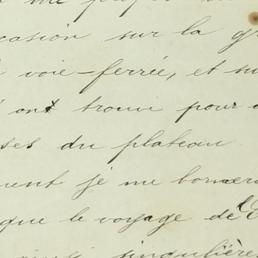 occasion sur la gr
voie-ferrée, et su
ont trouvé pour
ses du plateau
ment je me borner
que le voyage de l'E
singulière